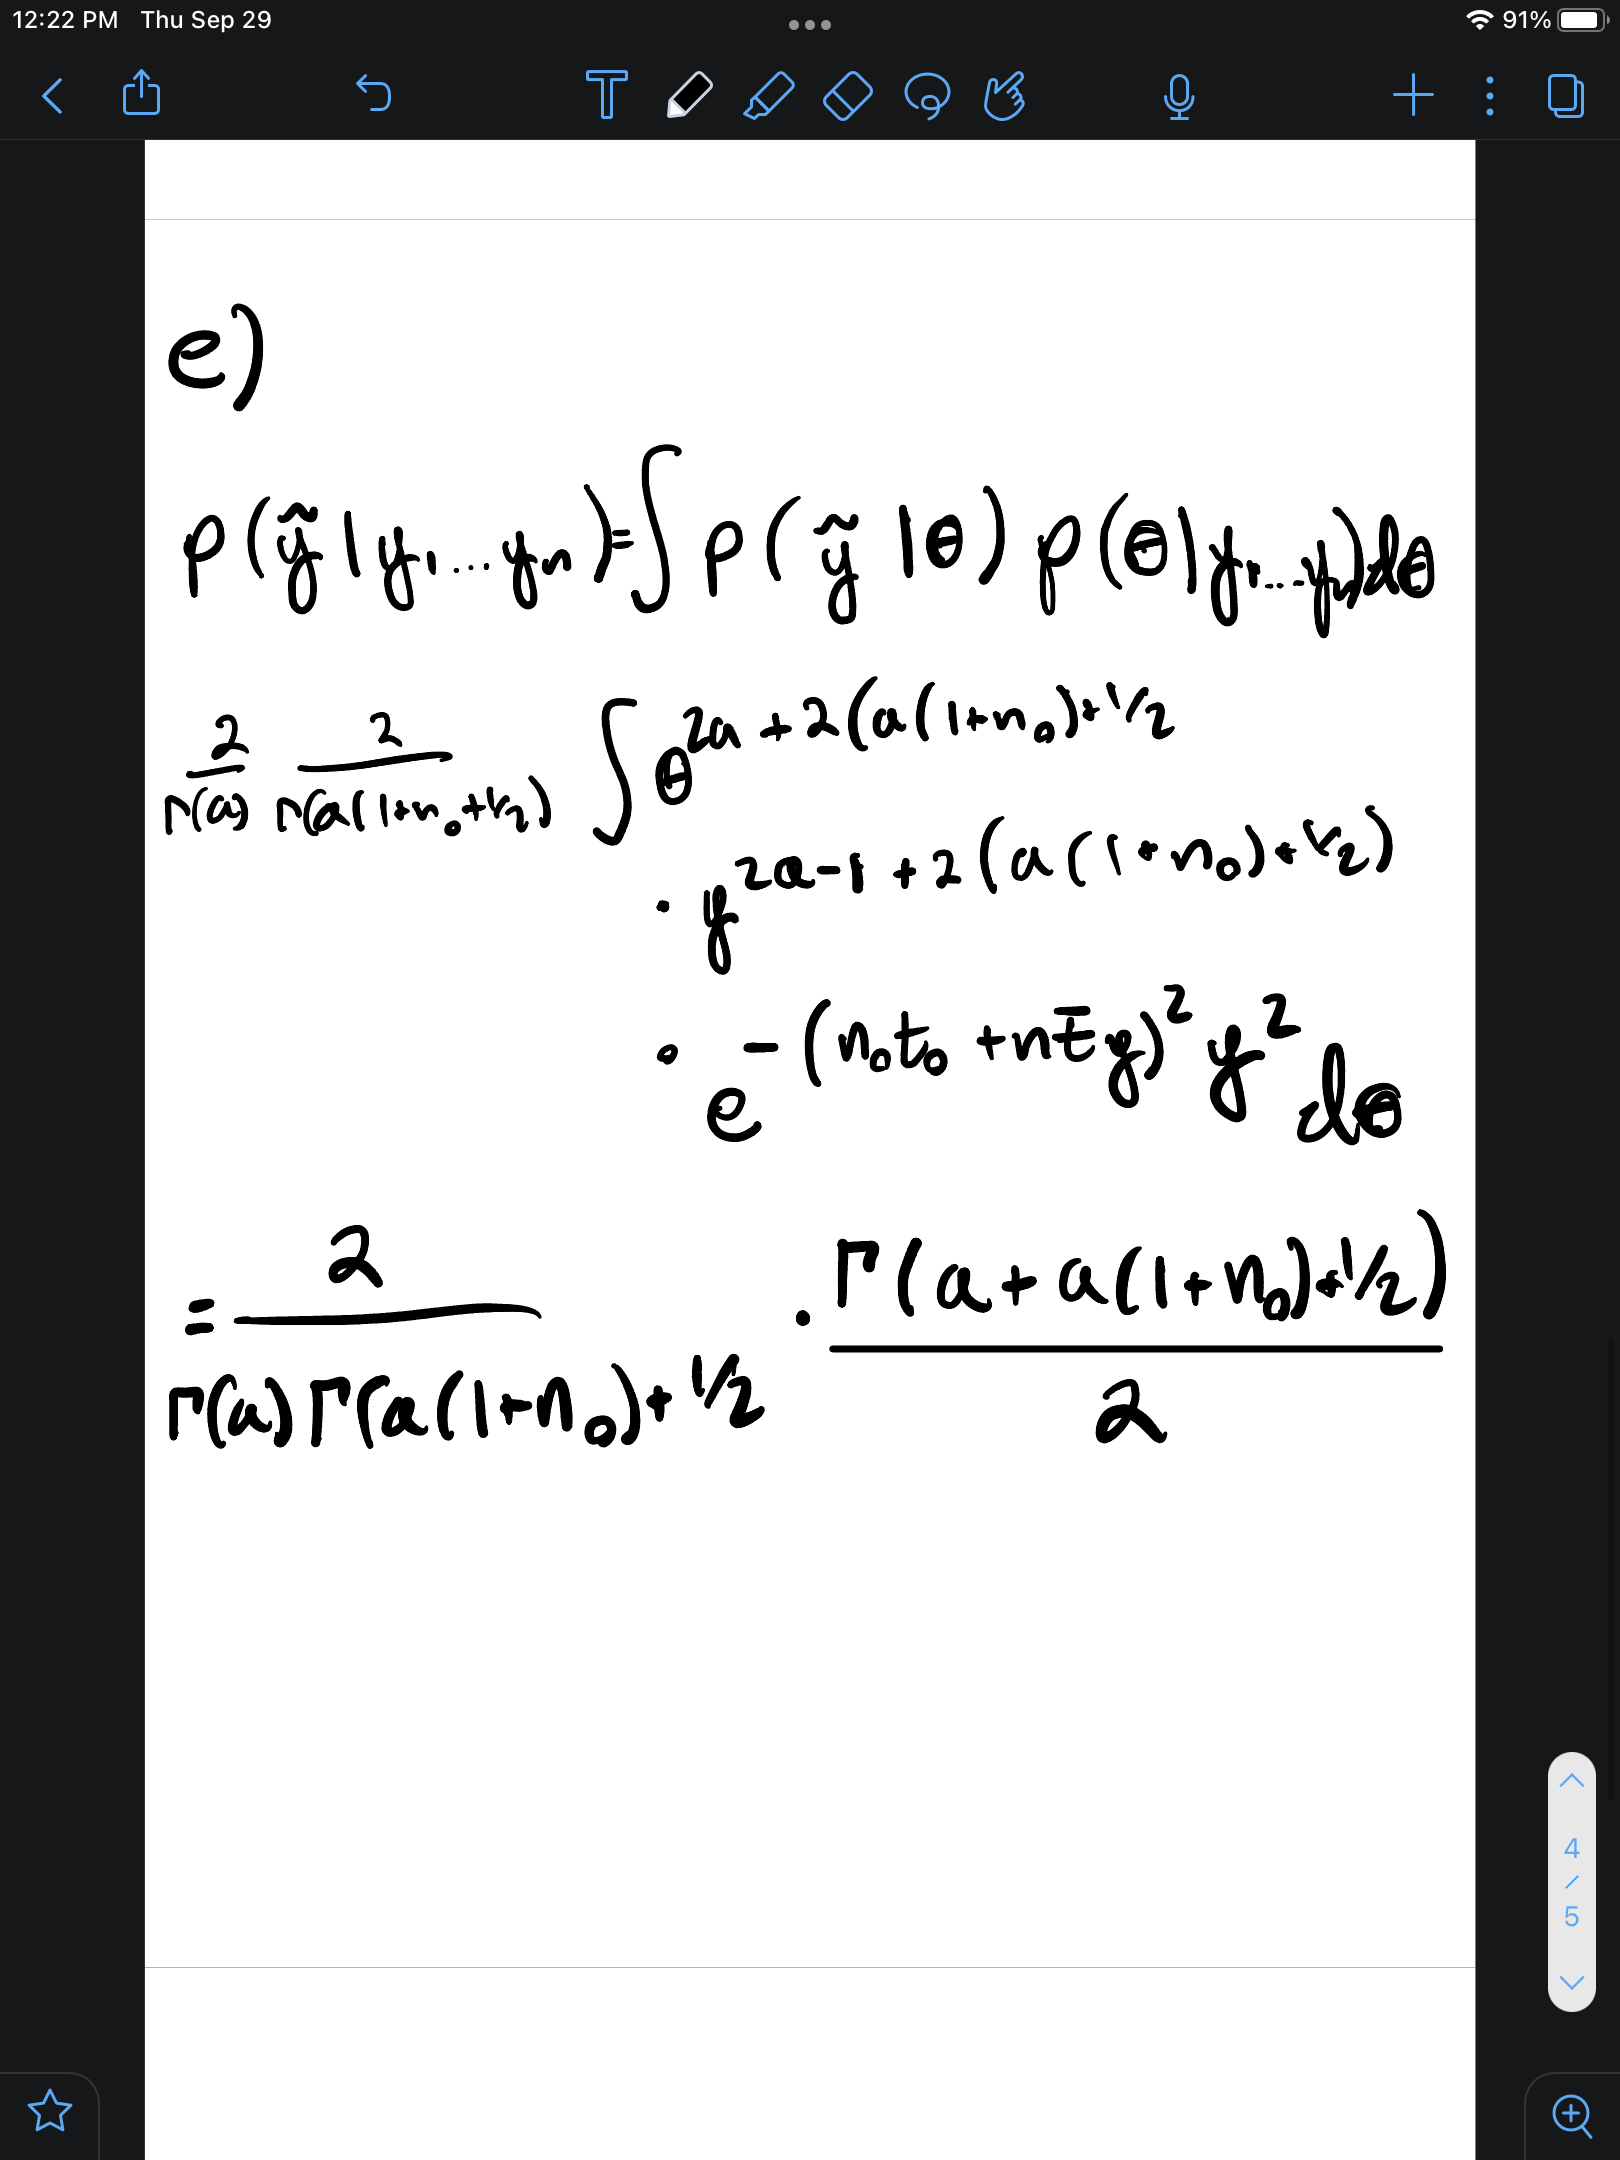 12:22 PM Thu Sep 29 91%
T
e)
p(ỹ|y₁...yₙ)=∫p(ỹ|θ)p(θ|y₁...yₙ)dθ
2/Γ(a) 2/Γ(a(1+n₀+1/2) ∫θ^2a+2(a(1+n₀)+1/2
· y^2a-1+2(a(1+n₀)+1/2)
· e^-(n₀t₀+nt̄y)²y² dθ
= 2/Γ(a)Γ(a(1+n₀)+1/2 · Γ(a+a(1+n₀)+1/2)/2
4
/
5